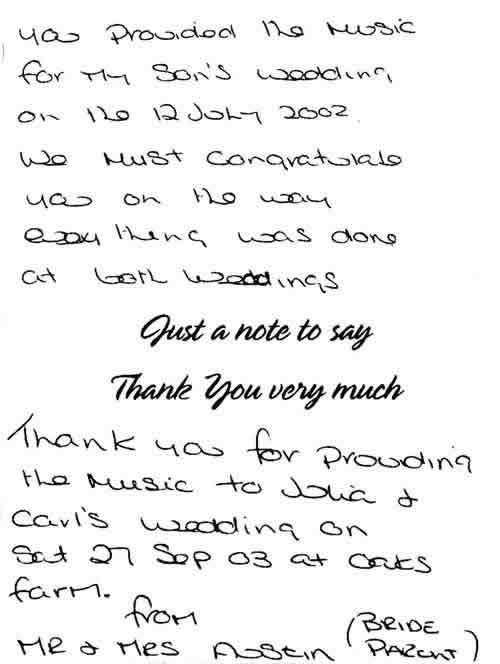 you Provided the Music
for My Son's wedding
on the 12 July 2002.
We Must Congratulate
you on the way
every thing was done
at both weddings
Just a note to say
Thank You very much
Thank you for Providing
the Music to Julia &
Carl's wedding on
Sat 27 Sep 03 at Oaks
farm.
from
MR & MRS Austin (BRIDE
PARENT)